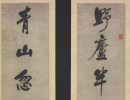 野廬半
青山忽